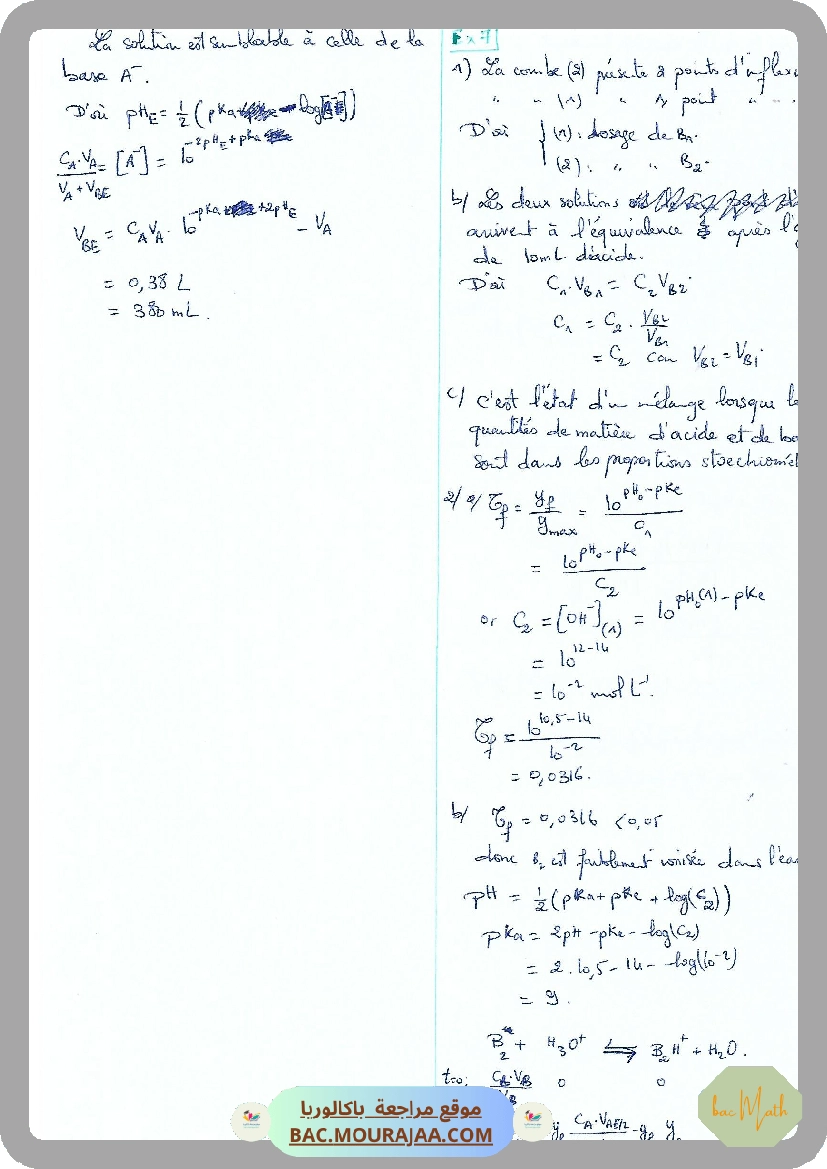 La solution est semblable à celle de la
base A⁻.
D'où pH_E = 1/2 ( pKa - log[A⁻])
C_A.V_A / V_A + V_BE = [A⁻] = 10^(-2pH_E + pKa
V_BE = C_A V_A . 10^(-pKa +2pH_E - V_A
= 0,38 L
= 380 mL.
Ex 7
1) La courbe (2) présente 2 points d'inflexi
" " (1) " 1 point " "
D'où { (1) : dosage de B₁.
(2) : " " B₂.
b/ Les deux solutions
arrivent à l'équivalence après l'
de 10mL d'acide.
D'où C₁.V_B1 = C₂V_B2.
C₁ = C₂ . V_B2 / V_B1
= C₂ car V_B2 = V_B1.
c/ c'est l'état d'un mélange lorsque le
quantités de matière d'acide et de ba
sont dans les proportions stoechiomét
2/ a/ τ_f = y_f / y_max = 10^(pH₀-pKe) / C₁
= 10^(pH₀-pKe) / C₂
or C₂ = [OH⁻]_(1) = 10^(pH₀(1) - pKe)
= 10^(12-14)
= 10⁻² mol L⁻¹.
τ_f = 10^(10,5-14) / 10⁻²
= 0,0316.
b/ τ_f = 0,0316 < 0,05
donc B₂ est faiblement ionisée dans l'eau
pH = 1/2 (pKa + pKe + log(C₂))
pKa = 2pH - pKe - log(C₂)
= 2.10,5 - 14 - log(10⁻²)
= 9.
B₂ + H₃O⁺ ⇌ B₂H⁺ + H₂O.
t=0: 0 0
y_f C_A.V_AE/2 - y_f y_f
موقع مراجعة باكالوريا
BAC.MOURAJAA.COM
bac Math